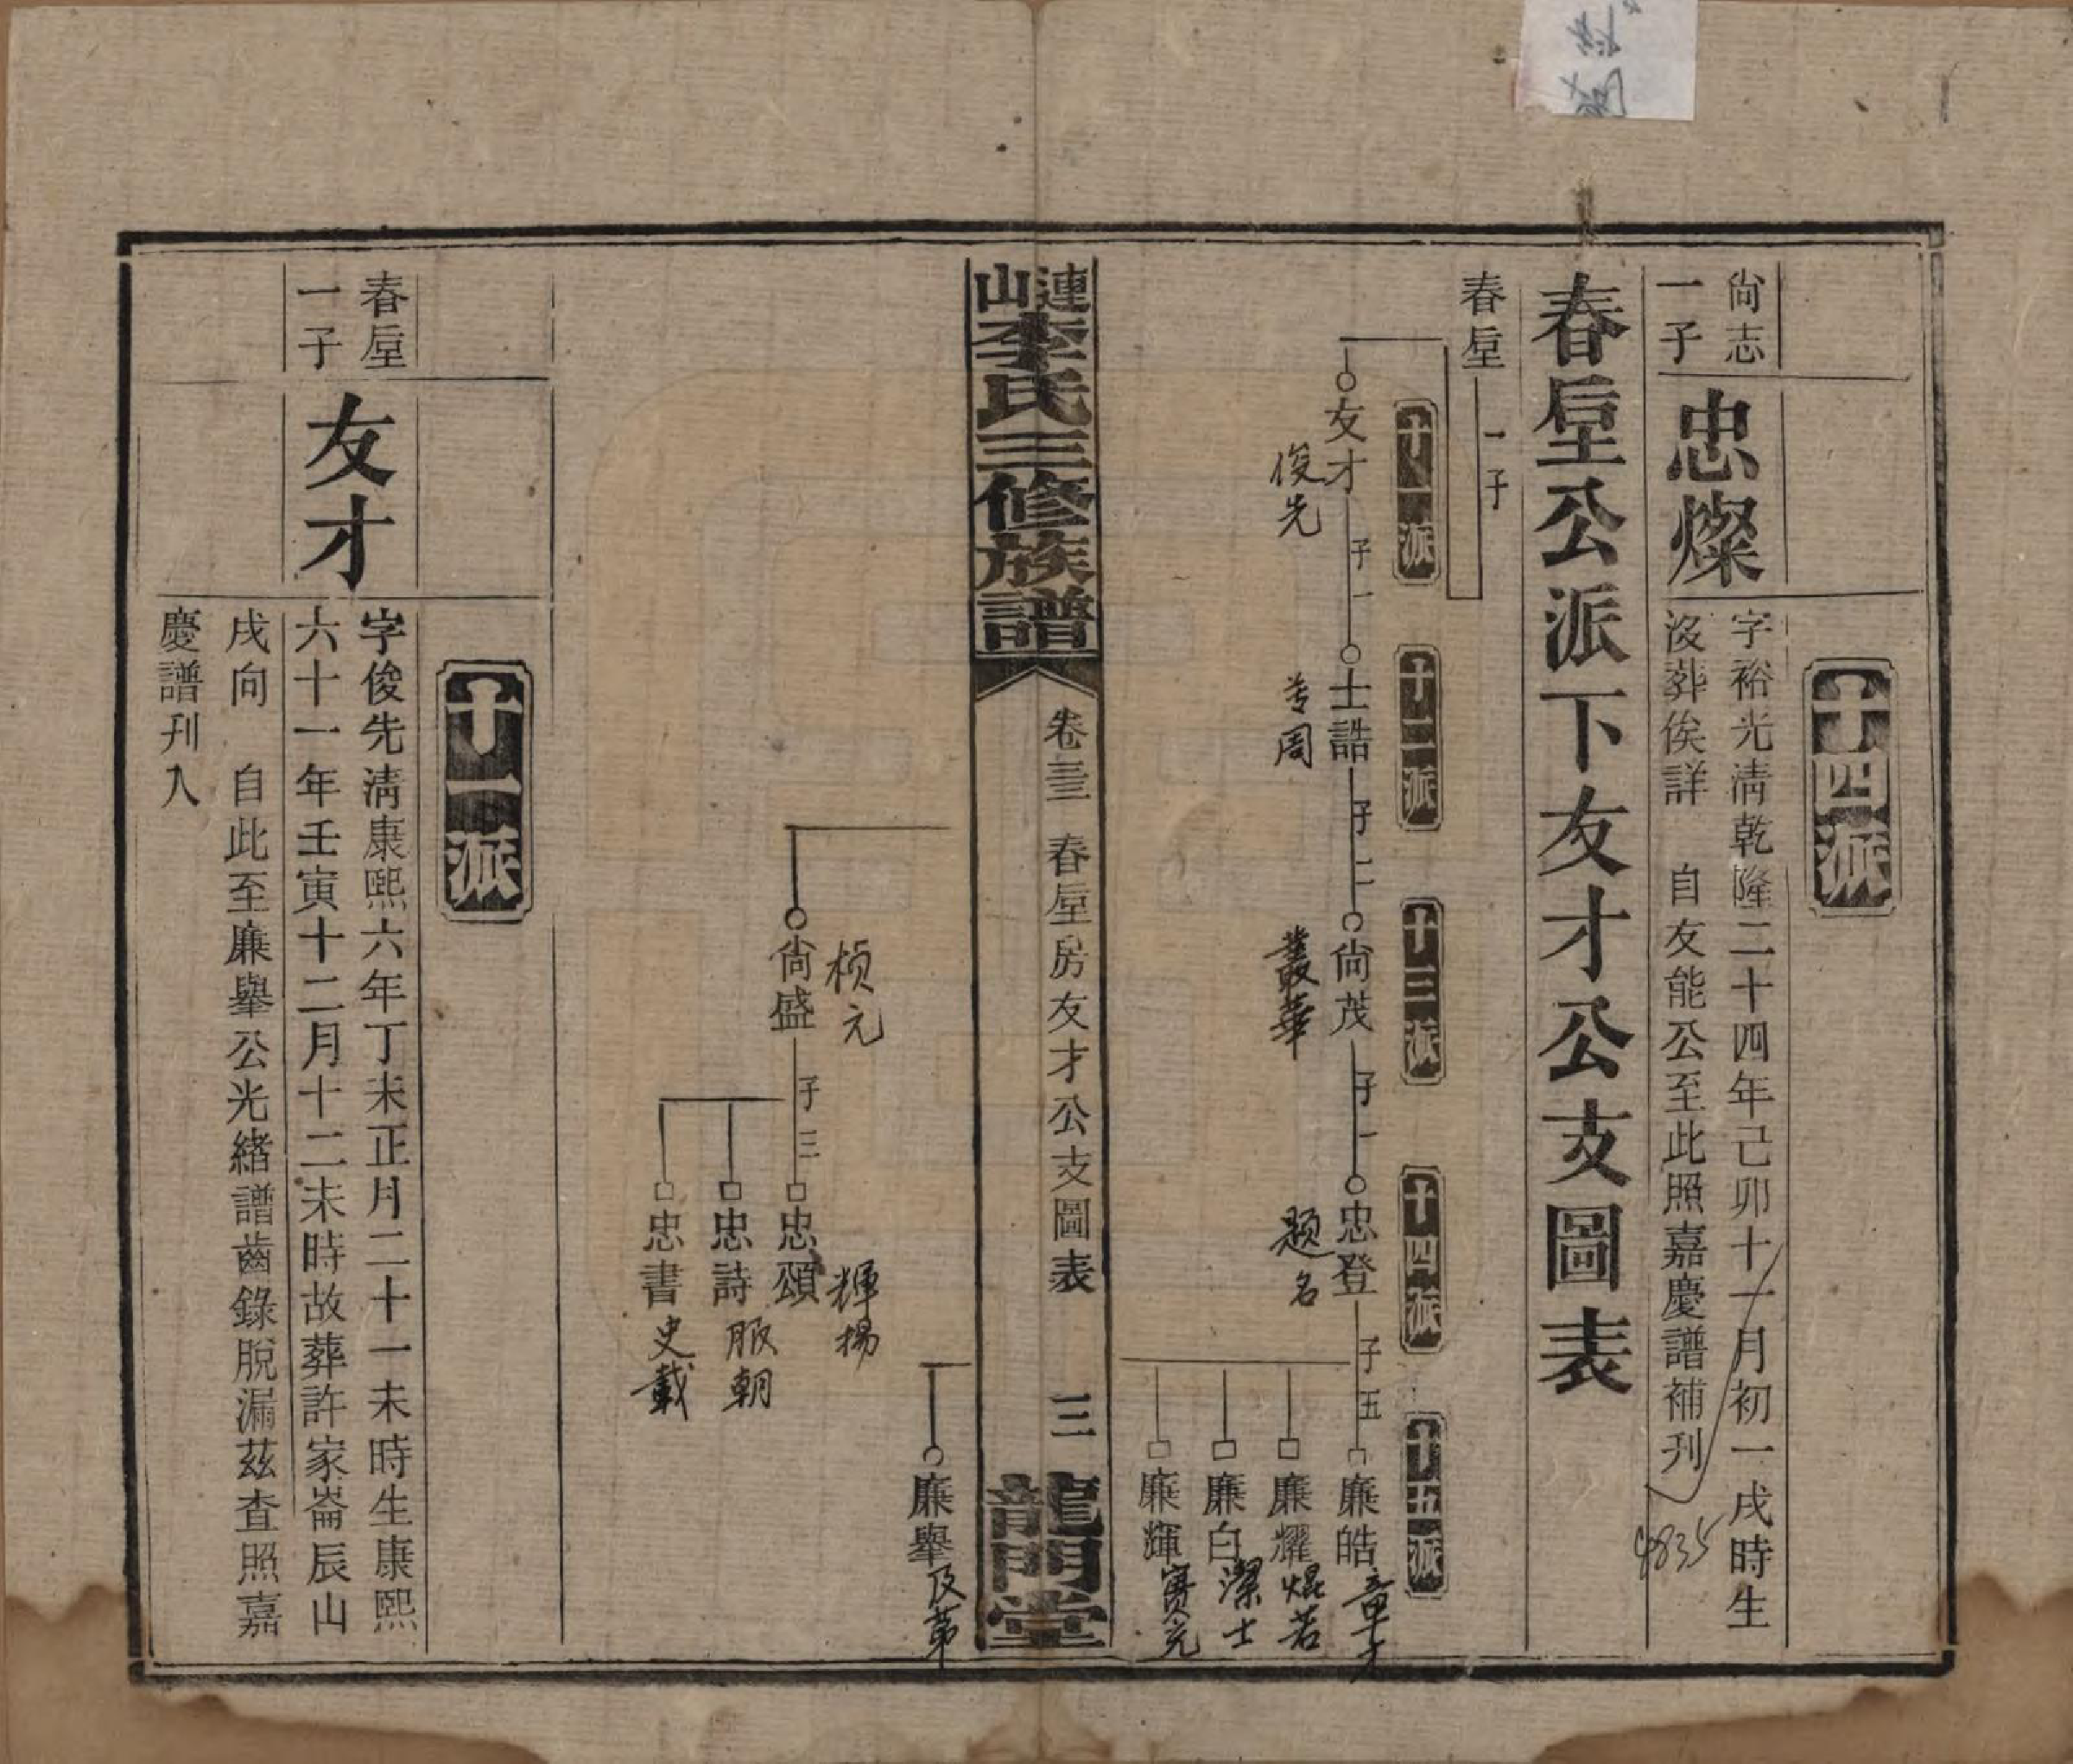 十四派
尙志
一子
忠燦
字裕光淸乾隆二十四年己卯十一月初一戌時生
沒葬俟詳 自友能公至此照嘉慶譜補刊
4835
春垕公派下友才公支圖表
春垕 一子
十一派
十二派
十三派
十四派
十五派
友才 子一 士誥 子二 尙茂 子一 忠登 子五 廉皓
俊先
专周
叢華
题名
章才
廉耀
焜若
廉白
潔士
廉輝
賓元
漣山李氏三修族譜
卷三三 春垕房友才公支圖表
三
龍門堂
廉舉
及第
尙盛 子三 忠頌
楨元
輝揚
忠詩
服朝
忠書
史載
十一派
春垕
一子
友才
字俊先淸康熙六年丁未正月二十一未時生康熙
六十一年壬寅十二月十二未時故葬許家崙辰山
戌向 自此至廉舉公光緒譜齒錄脫漏茲查照嘉
慶譜刊入